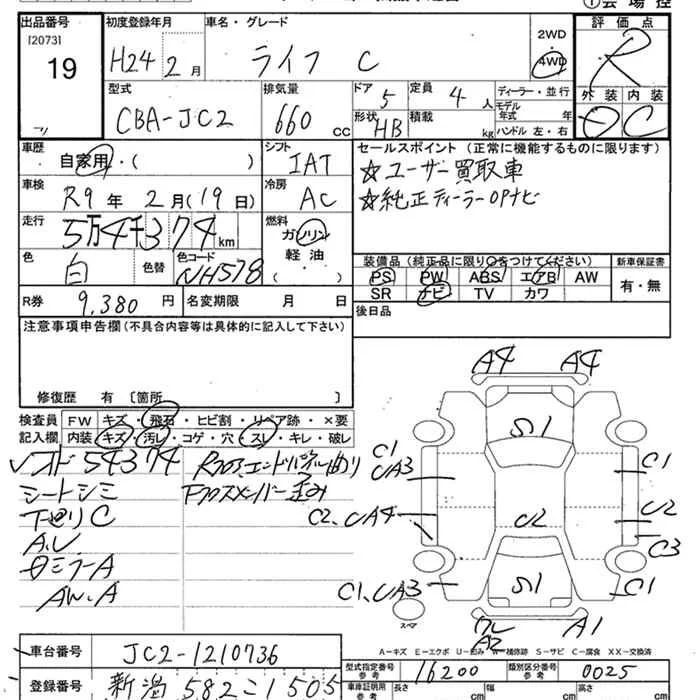 出品番号
[2073]
19
初度登録年月
H24 2 月
車名・グレード
ライフ C
2WD
4WD
評価点
R
型式
CBA-JC2
排気量
660 cc
ドア 5
定員 4 人
形状 HB
積載 kg
ディーラー・並行
モデル年式 年
ハンドル 左・右
外装 内装
D C
車歴
自家用・( )
シフト
IAT
セールスポイント (正常に機能するものに限ります)
☆ユーザー買取車
☆純正ディーラーOPナビ
車検
R9 年 2 月(19 日)
冷房
AC
走行
5万4千374 km
燃料
ガソリン
軽油
( )
色
白
色替
色コード
NH578
装備品 (純正品に限り○をつけてください)
新車保証書
PS PW ABS エアB AW
SR ナビ TV カワ
有・無
R券 9,380 円
名変期限 月 日
後日品
注意事項申告欄 (不具合内容等は具体的に記入して下さい)
修復歴 有 〔箇所 〕
検査員記入欄
FW キズ・飛石・ヒビ割・リペア跡・×要
内装 キズ・汚レ・コゲ・穴・スレ・キレ・破レ
54374
シートシミ
下回りC
A.U
日ミラーA
AW.A
A4 A4
S1
C1
UA3
C1
C2、UA4
U2
C2
C3
C1、UA3
S1
C1
スペア
A2
A1
A-キズ E-エクボ U-凹み W-補修跡 S-サビ C-腐食 XX-交換済
車台番号
JC2-1210736
登録番号
新潟 582 こ 1505
型式指定番号
参考
16200
類別区分番号
参考
0025
車庫証明用
参考
長さ cm
幅 cm
高さ cm